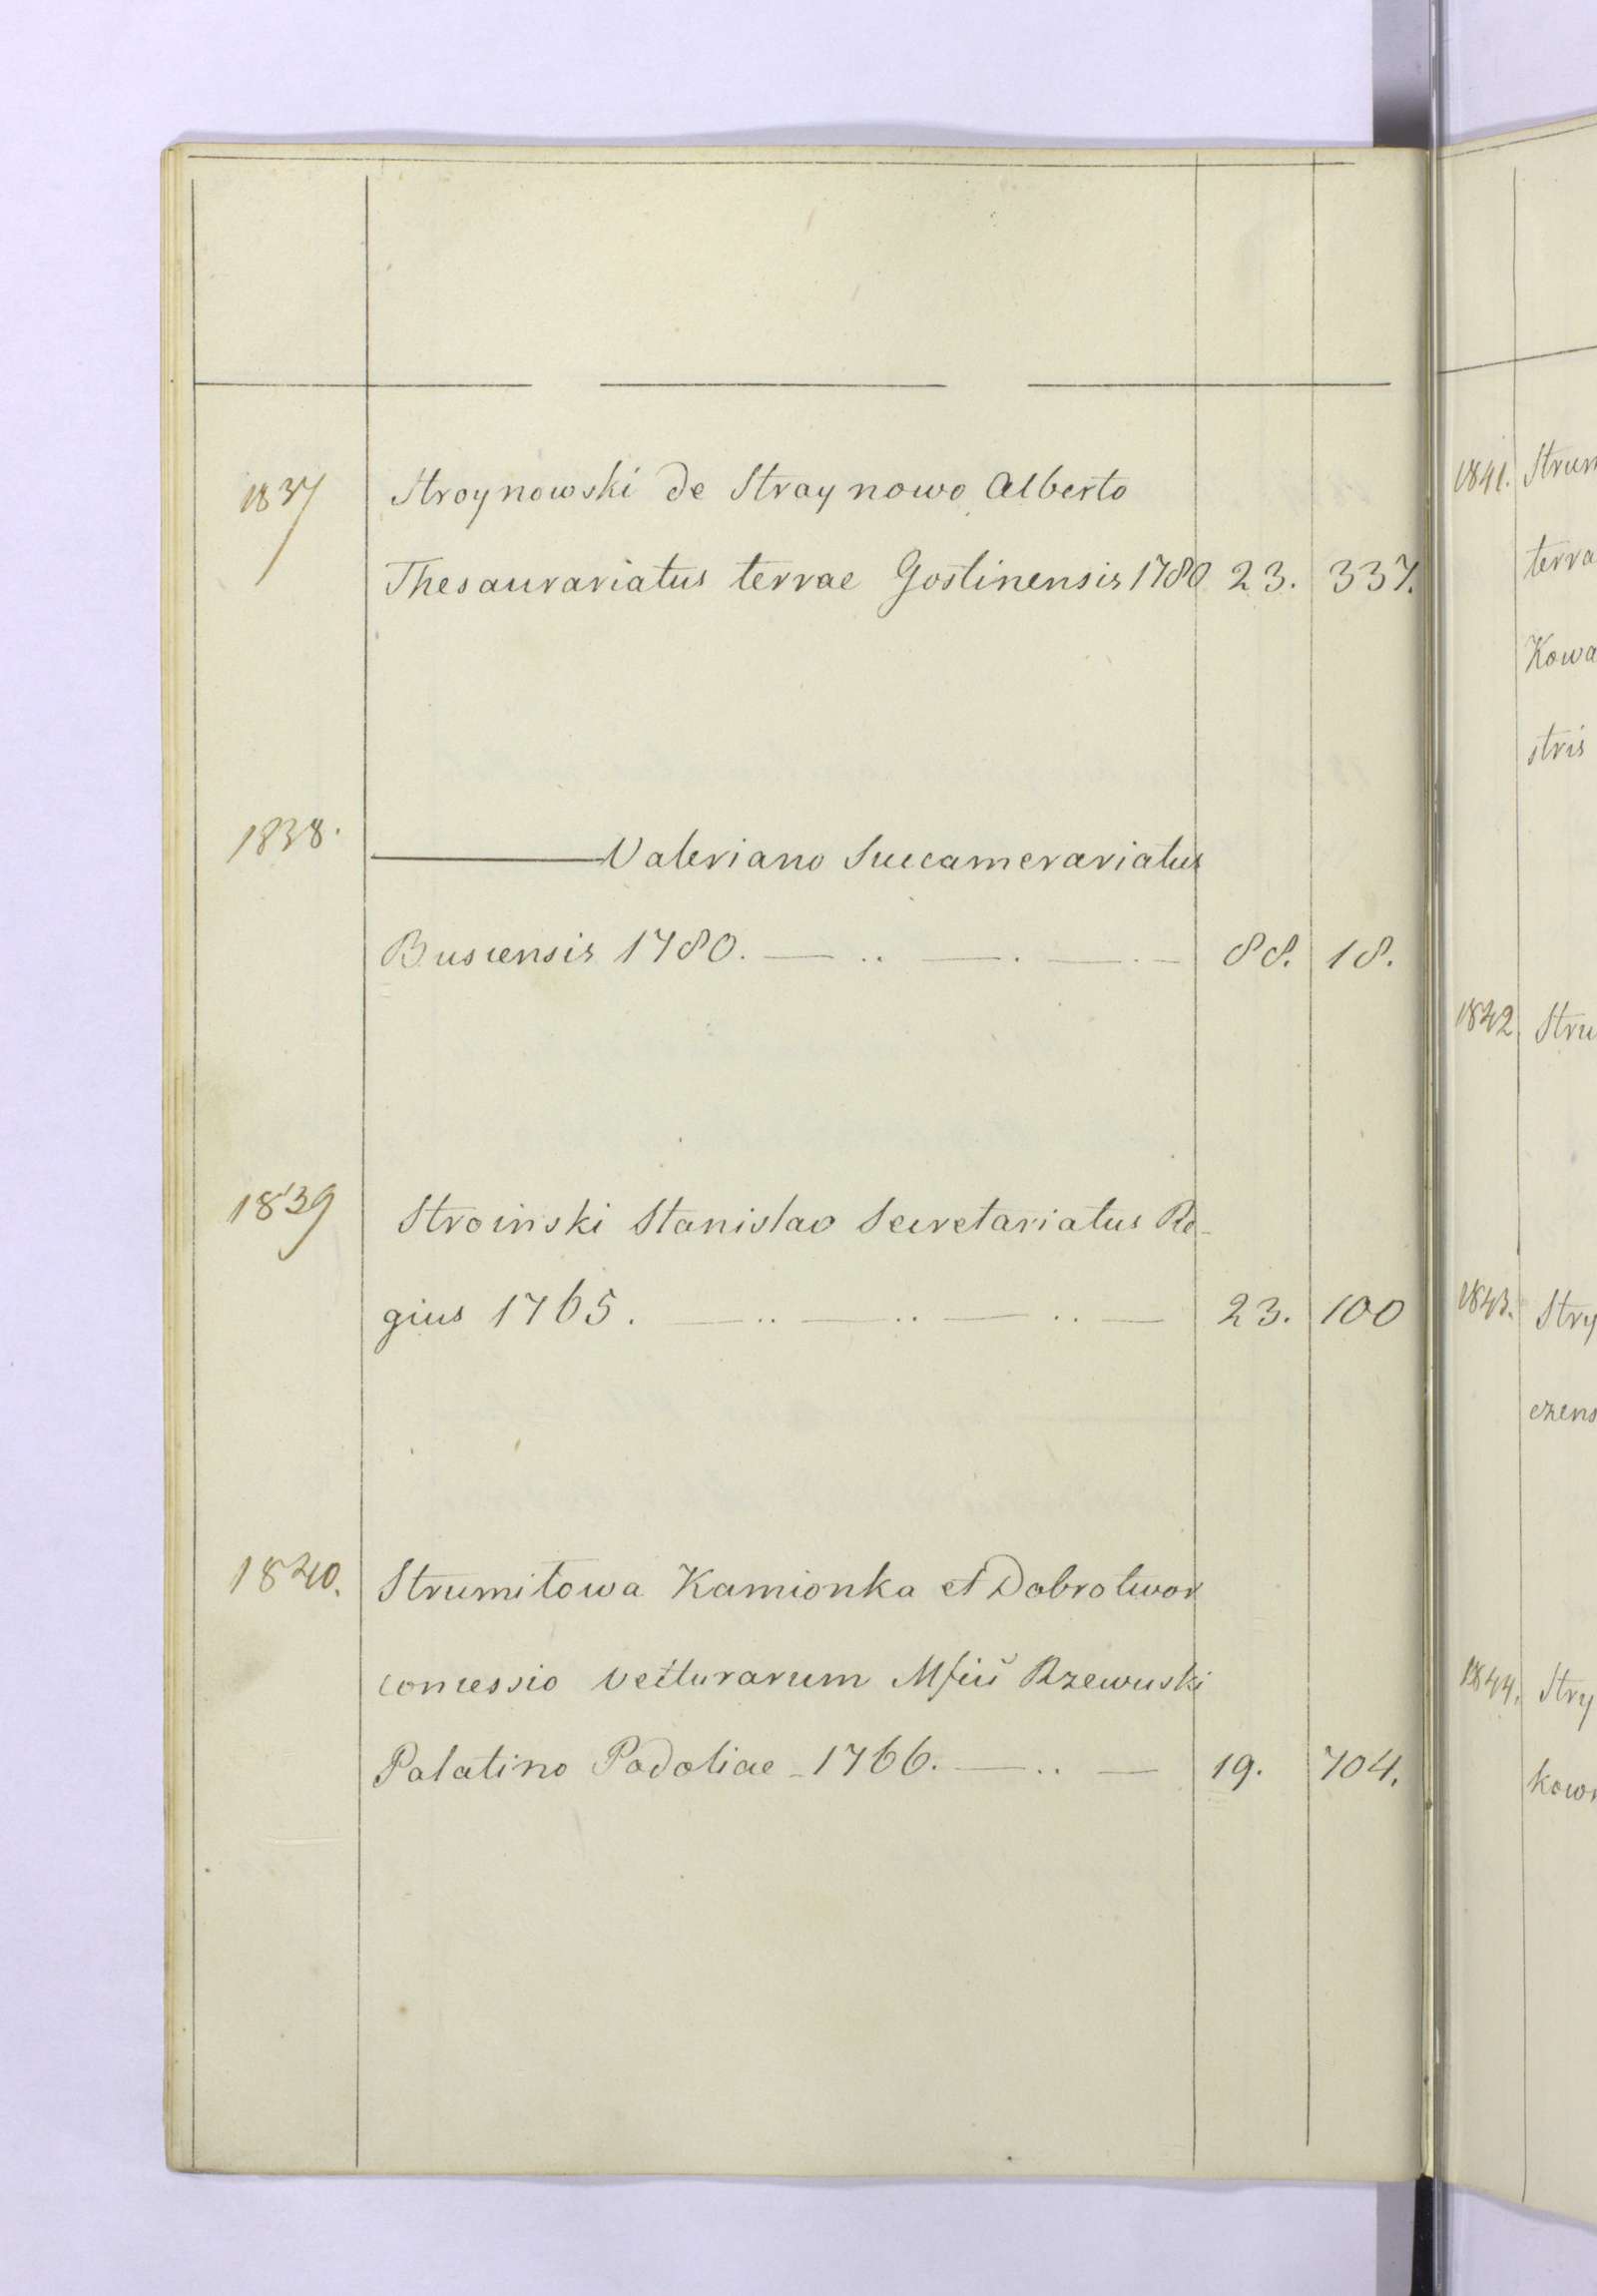 1837 Stroynowski de Straynowo Alberto
Thesaurariatus terrae Gostinensis 1780 23. 337.
1838. ——— Valeriano Succamerariatus
Buscensis 1780. — .. — . — . — 88. 18.
1839 Stroinski Stanislao Secretariatus Re-
gius 1765. — .. — .. — .. — 23. 100
1840. Strumitowa Kamionka et Dobrotwor
concessio vecturarum Mfico Rzewuski
Palatino Podoliae - 1766. — .. — 19. 704.
1841. Strum
terra
Kowa
stris
1842. Stru
1843. Stry
czens
1844. Stry
kow